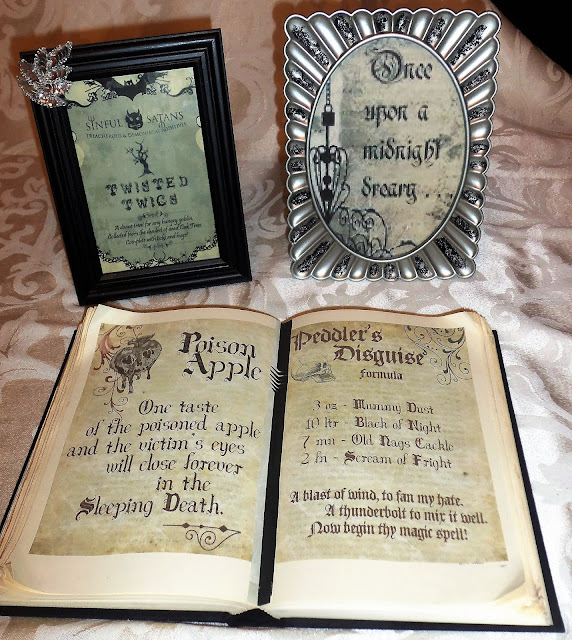 SINFUL SATANS
TREACHEROUS & DEMONICAL
TWISTED
TWIGS
A desert treat for any hungry goblin,
Complete with
Once
upon a
midnight
dreary...
Poison
Apple
One taste
of the poisoned apple
and the victim's eyes
will close forever
in the
Sleeping Death.
Peddler's
Disguise
formula
3 oz - Mummy Dust
10 ltr - Black of Night
7 mn - Old Nags Cackle
2 fn - Scream of Fright
A blast of wind, to fan my hate.
A thunderbolt to mix it well.
Now begin thy magic spell!